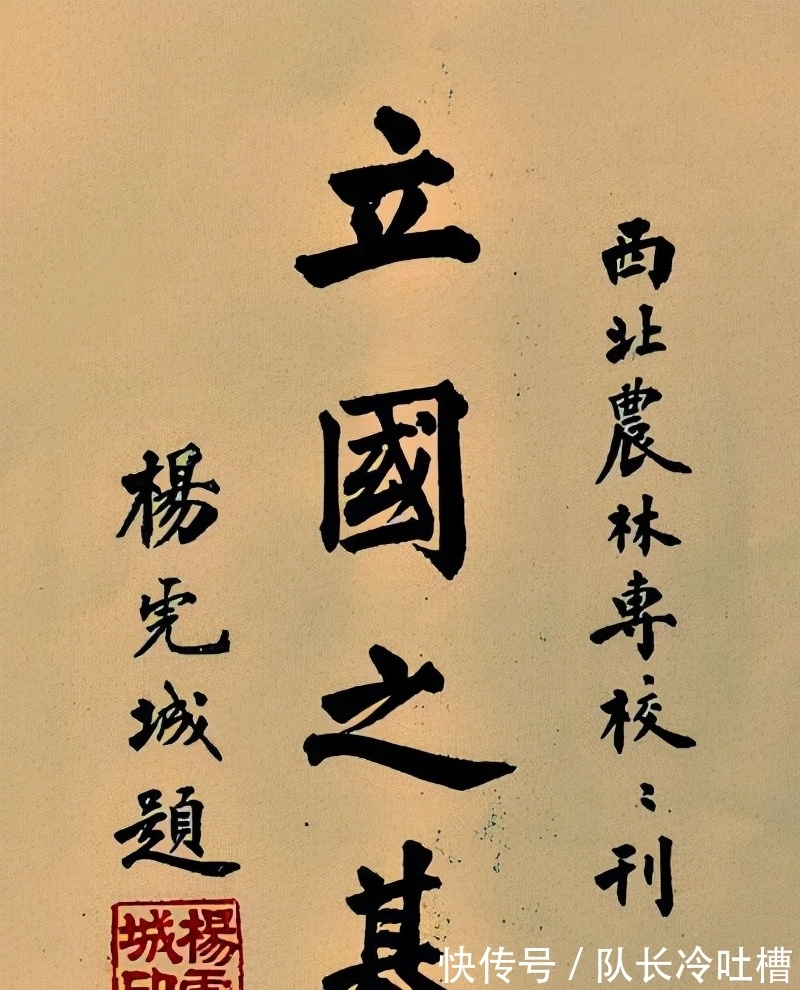 西北農林專校〻刊
立國之基
楊虎城題
楊虎城印
快传号 / 队长冷吐槽